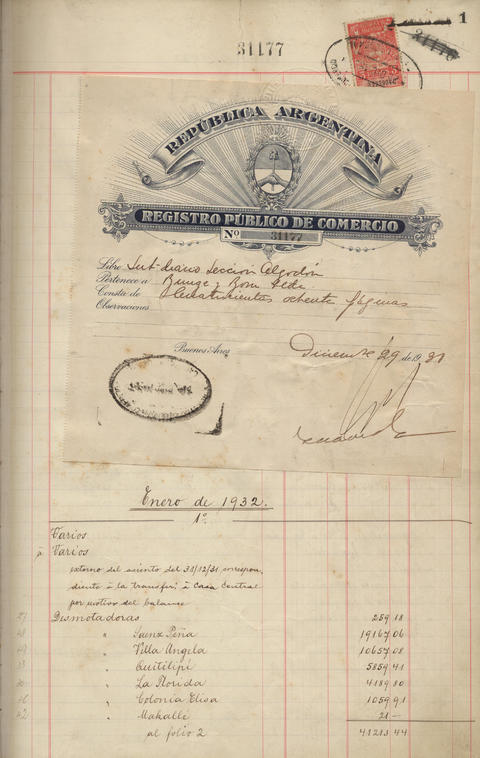 1
31177
REPÚBLICA ARGENTINA
REGISTRO PÚBLICO DE COMERCIO
Nº 31177
Libro Sub-diario Sección Algodón
Pertenece a Bunge y Born Ltda.
Consta de ochenta páginas
Observaciones
Buenos Aires Diciembre 29 de 1931
Enero de 1932.
1º
Varios
à Varios
extorno del asiento del 31/12/31 correspon,
diente à la transfer; à Casa Central
por motivo del balance
Desmotadoras 259 18
" Saenz Peña 19167 06
" Villa Angela 10657 08
" Quitilipi 5859 41
" La Florida 4189 80
" Colonia Elisa 1059 91
" Makallé 21 —
al folio 2 41213 44